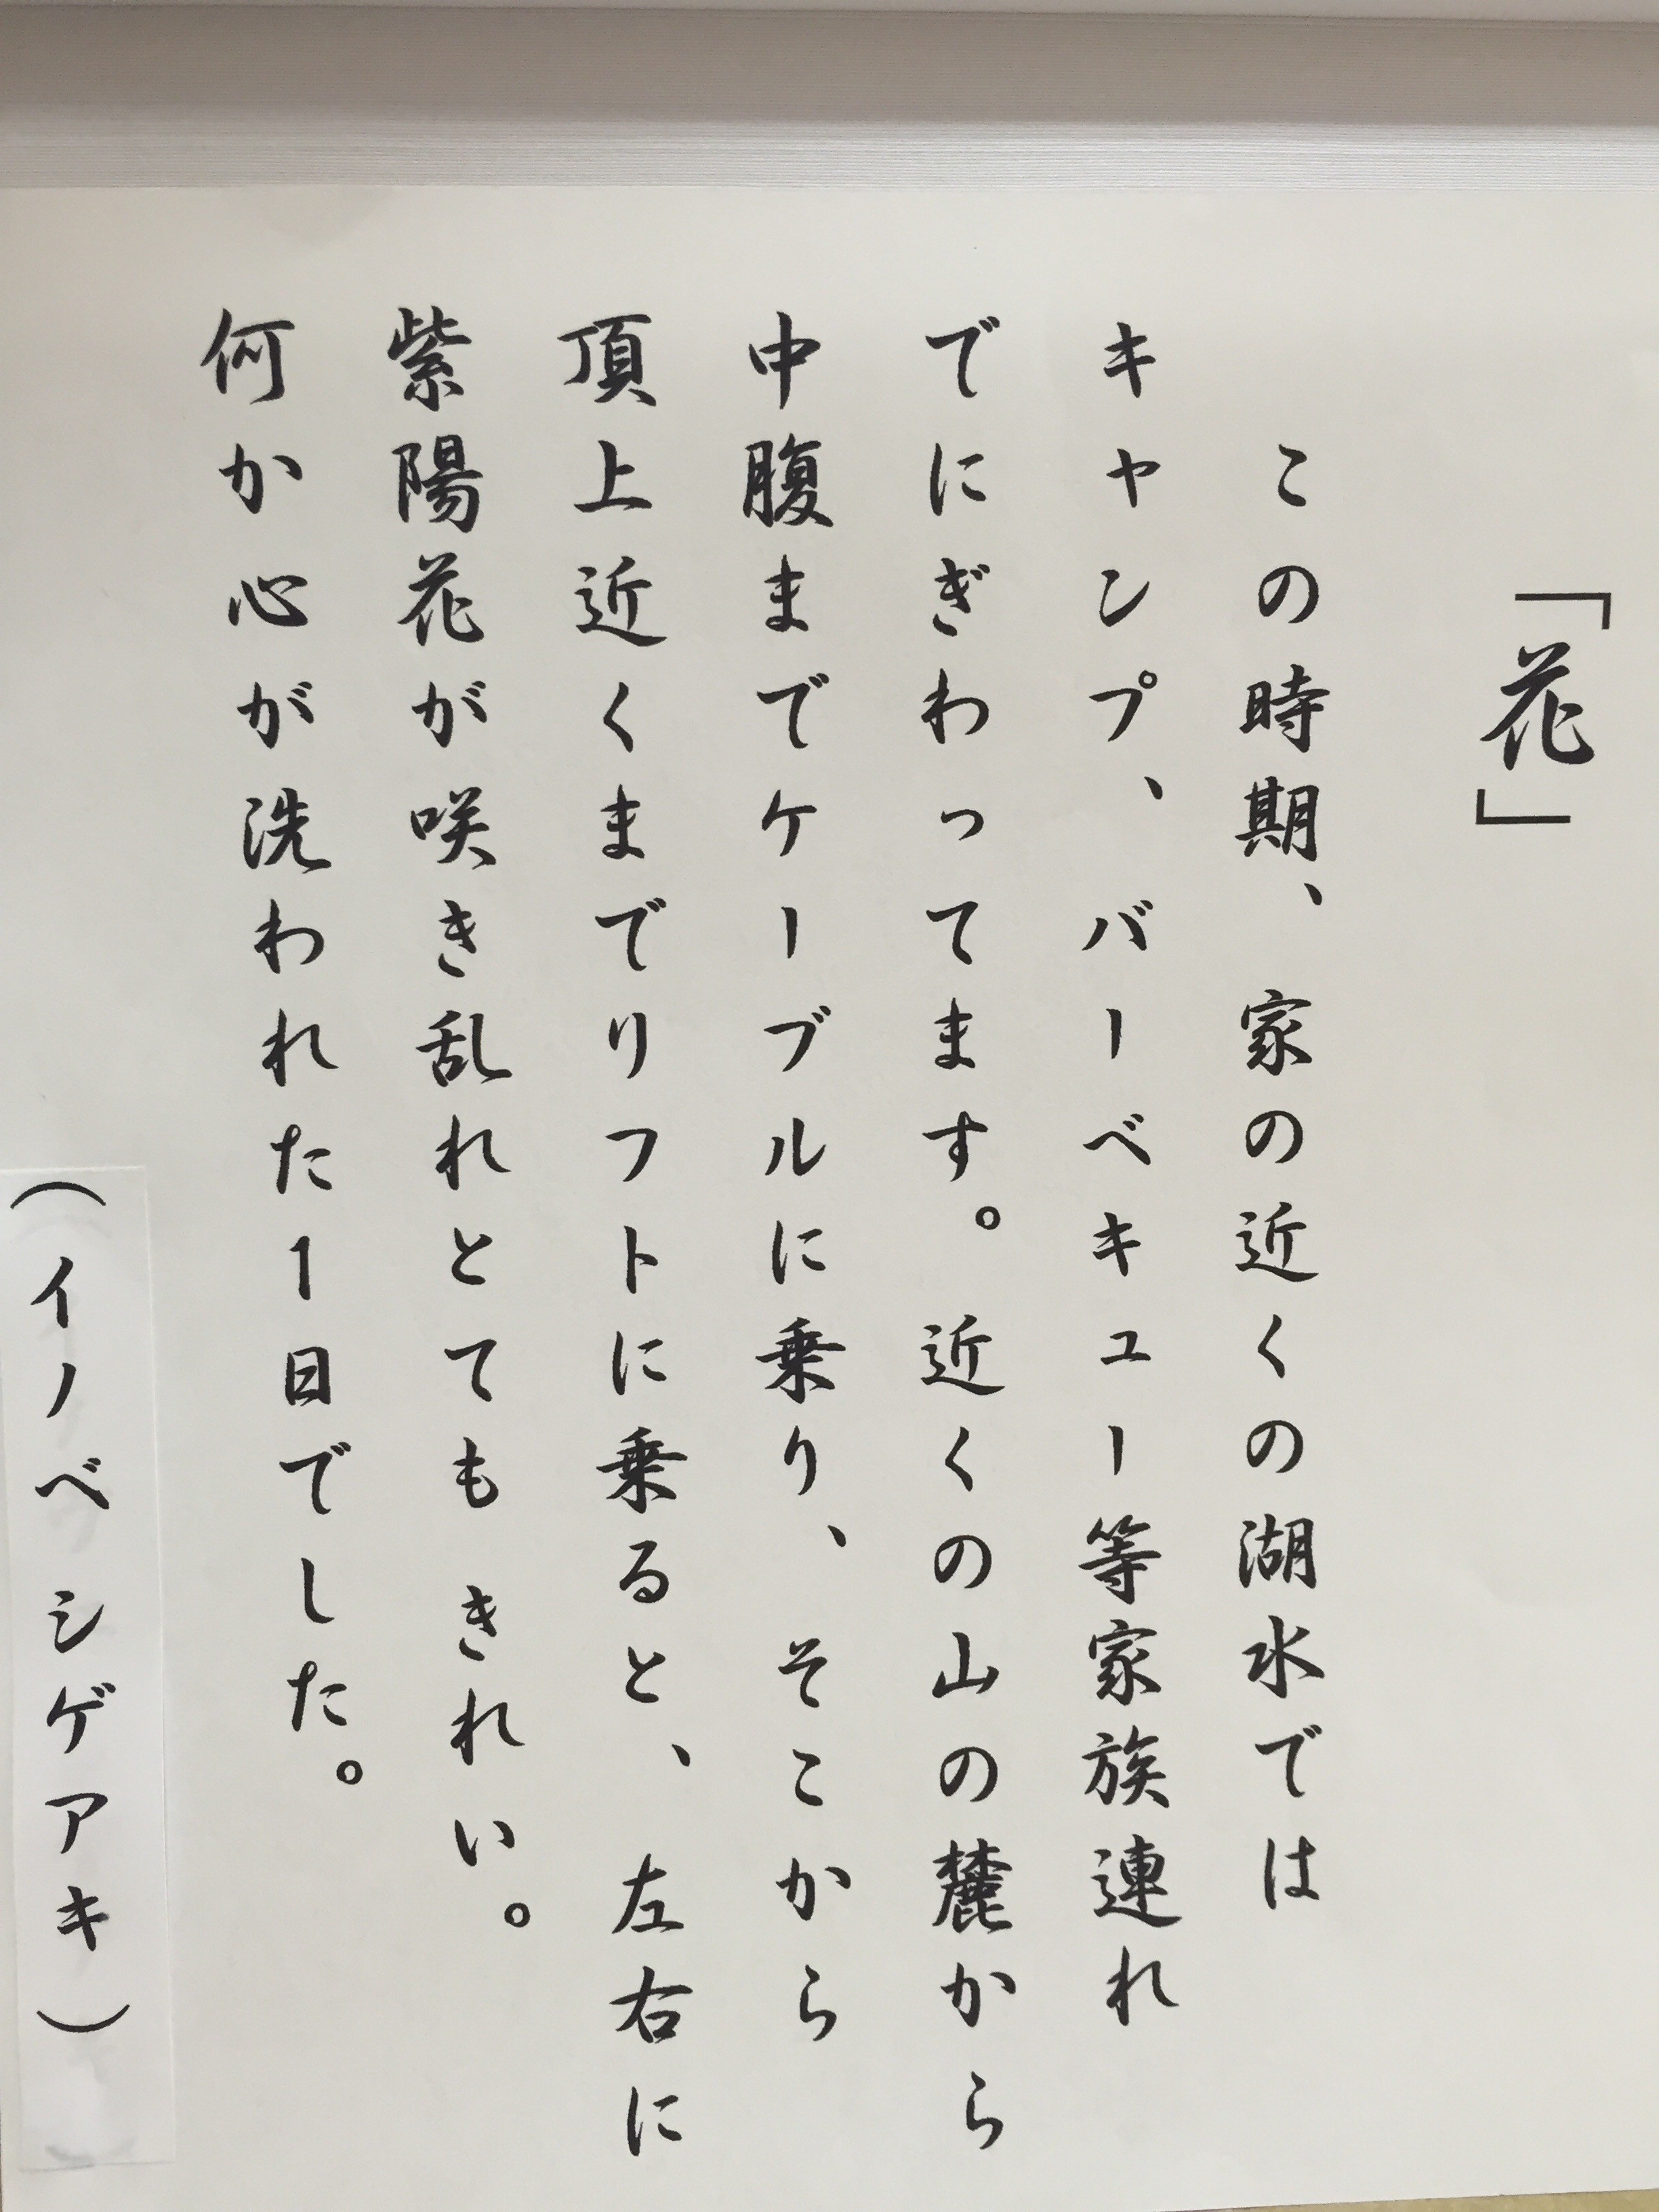 「花」
この時期、家の近くの湖水では
キャンプ、バーベキュー等家族連れ
でにぎわってます。近くの山の麓から
中腹までケーブルに乗り、そこから
頂上近くまでリフトに乗ると、左右に
紫陽花が咲き乱れとても きれい。
何か心が洗われた1日でした。
（イノベ シゲアキ）